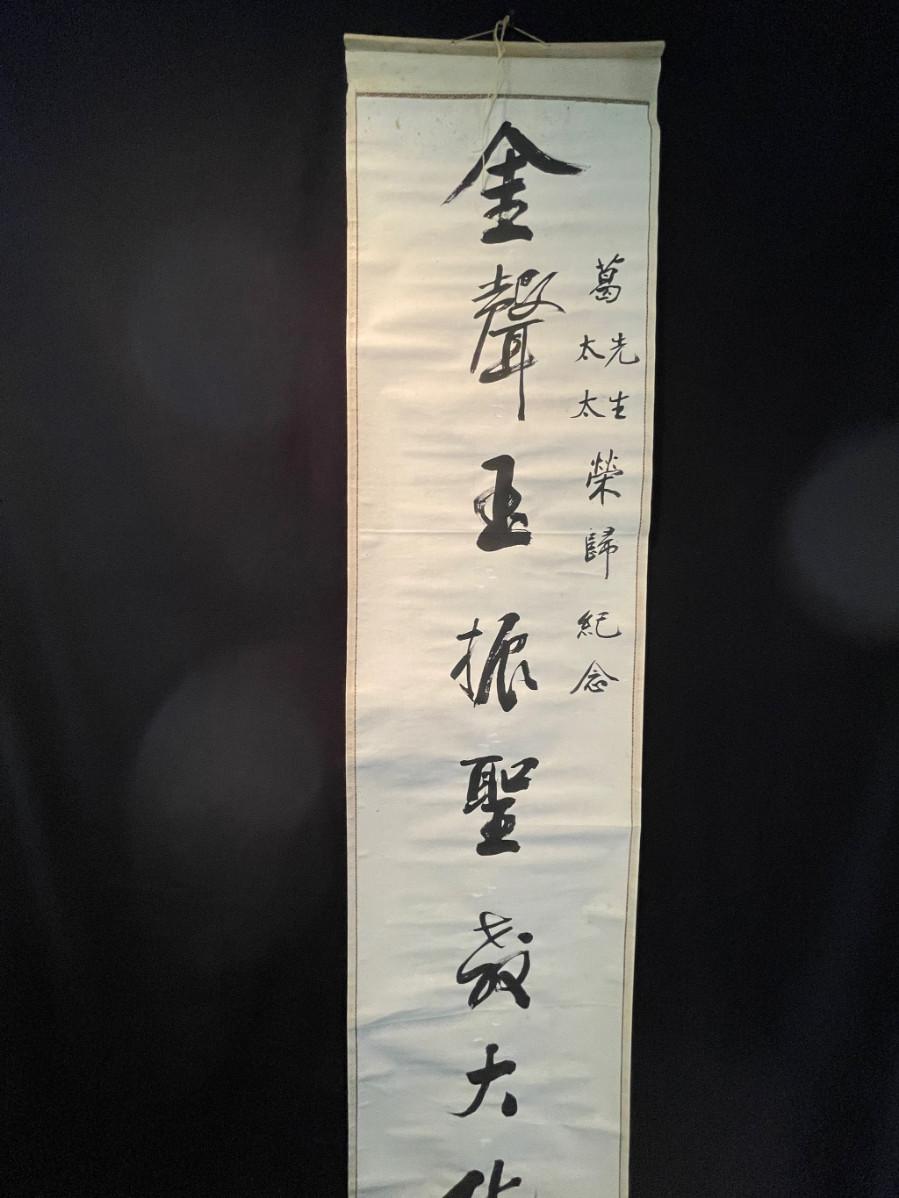 葛先生太太榮歸紀念
金聲玉振聖教大